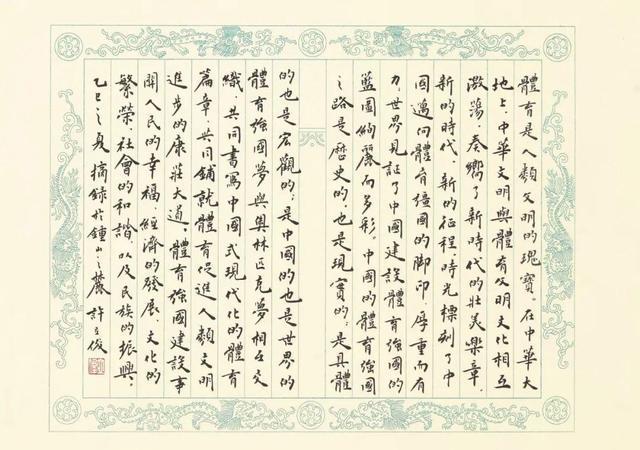 體育是人類文明的瑰寶。在中華大
地上,中華文明與體育文明文化相互
激蕩,奏響了新時代的壯美樂章。
新的時代、新的征程,時光標刻了中
國邁向體育強國的腳印,厚重而有
力,世界見証了中國建設體育強國的
藍圖絢麗而多彩。中國的體育強國
之路是歷史的,也是現實的;是具體
的也是宏觀的;是中國的也是世界的
體育強國夢與奧林匹克夢相互交
織,共同書寫中國式現代化的體育
篇章,共同鋪就體育促進人類文明
進步的康莊大道。體育強國建設事
關人民的幸福、經濟的發展、文化的
繁榮、社會的和諧、以及民族的振興。
乙巳之夏摘錄於鍾山之麓 許立俊